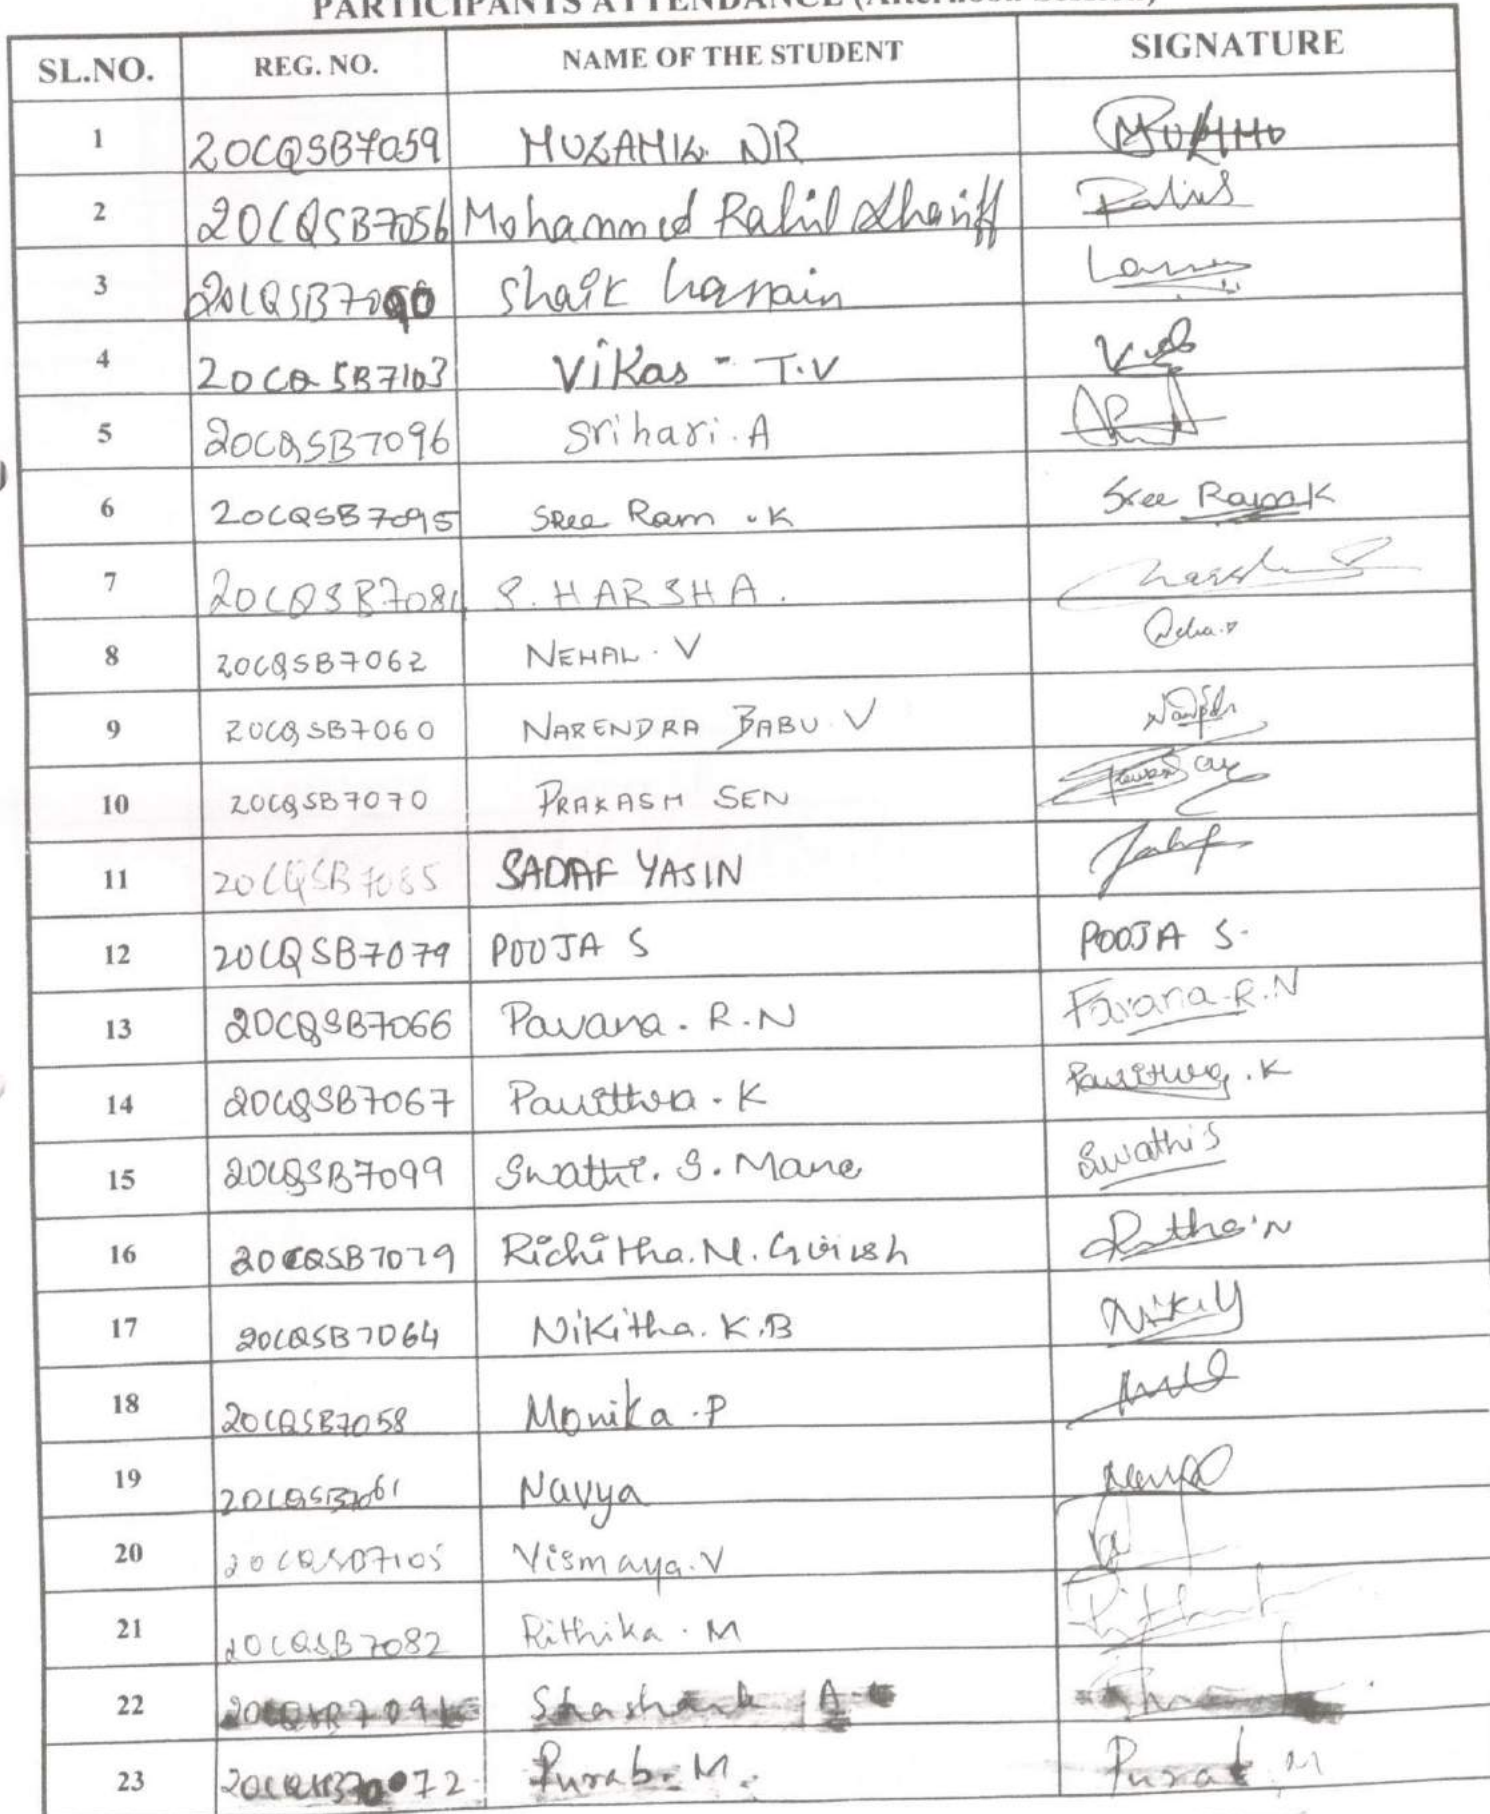 PARTICIPANTS ATTENDANCE (Afternoon Session)
SL.NO. REG. NO. NAME OF THE STUDENT SIGNATURE
1 20CQSB7059 MUZAMIL NR
2 20CQSB7056 Mohammed Rahil Shariff
3 20CQSB7090 Shaik hasnain
4 20CQSB7103 Vikas - T.V
5 20CQSB7096 Srihari.A
6 20CQSB7095 SRee Ram .K Sree Ram K
7 20CQSB7081 S. HARSHA. Harsha
8 20CQSB7062 NEHAL. V
9 20CQSB7060 NARENDRA BABU. V
10 20CQSB7070 PRAKASH SEN
11 20CQSB7085 SADAF YASIN
12 20CQSB7079 POOJA S POOJA S.
13 20CQSB7066 Pavana. R.N Pavana.R.N
14 20CQSB7067 Pavithra. K Pavithra.K
15 20CQSB7099 Swathi. S. Mane Swathi S
16 20CQSB7079 Richitha.N. Girish
17 20CQSB7064 Nikitha. K.B
18 20CQSB7058 Monika .P
19 20CQSB7061 Navya
20 20CQSB7105 Vismaya.V
21 20CQSB7082 Rithika. M
22 Shashank A
23 Purab. M. Purab M